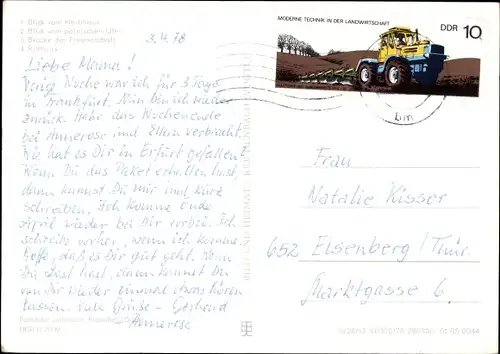 1. Blick vom Hochhaus
3. Brücke der Freundschaft
4. Rathaus
3.4.78
Liebe Mama!
Vorige Woche war ich für 3 Tage
in Frankfurt. Nun bin ich wieder
zurück. Habe das Wochenende
bei Annerose und Eltern verbracht.
Wie hat es Dir in Erfurt gefallen?
Wenn Du das Paket erhalten hast,
dann kannst Du mir mal kurz
schreiben. Ich komme Ende
April wieder bei Dir vorbei. Ich
schreibe vorher, wenn ich komme.
Hoffe, daß es Dir gut geht. Wenn
Du Lust hast, dann kannst Du
von Dir wieder einmal etwas hören
lassen. Viele Grüße - Gerhard
Annerose
MODERNE TECHNIK IN DER LANDWIRTSCHAFT
DDR 10
Frau
Natalie Kisser
652 Eisenberg/Thür.
Marktgasse 6